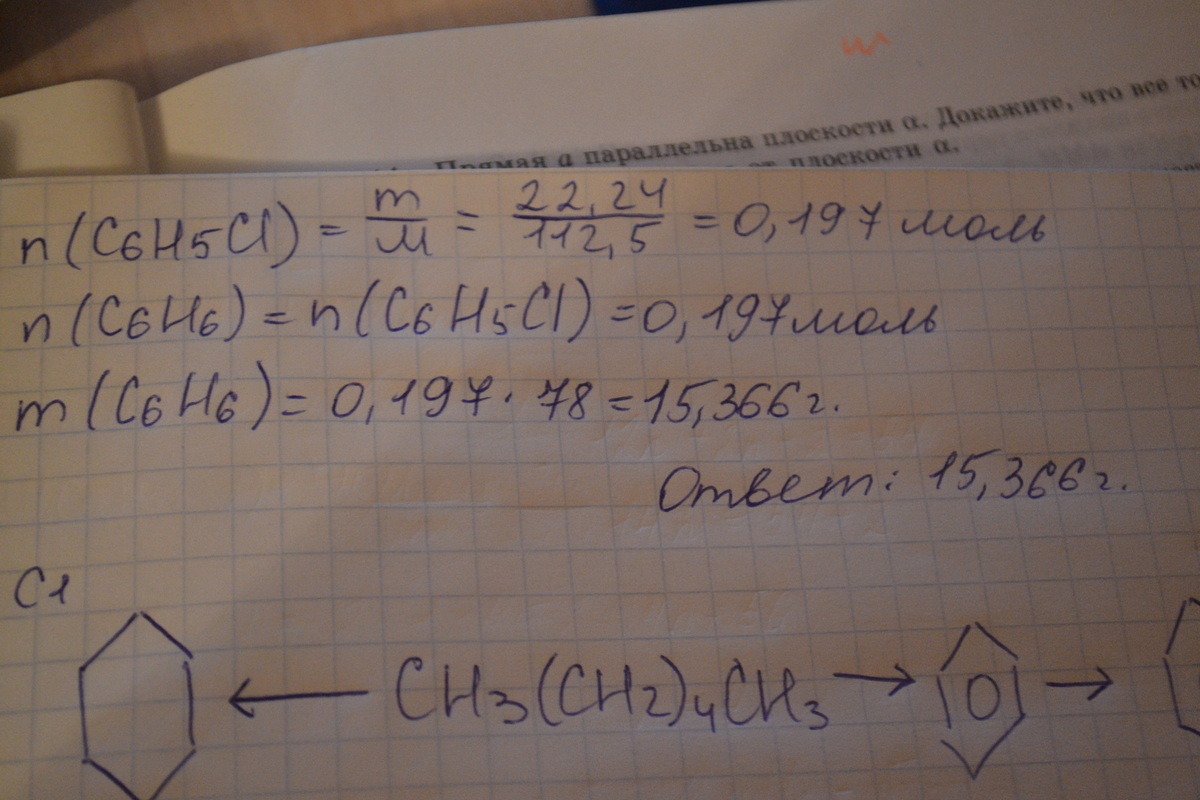 Прямая a параллельна плоскости α. Докажите, что все то
плоскости α.
n(C6H5Cl) = m/M = 22,24/112,5 = 0,197 моль
n(C6H6) = n(C6H5Cl) = 0,197 моль
m(C6H6) = 0,197 · 78 = 15,366 г.
Ответ: 15,366 г.
Cl
← CH3(CH2)4CH3 → →